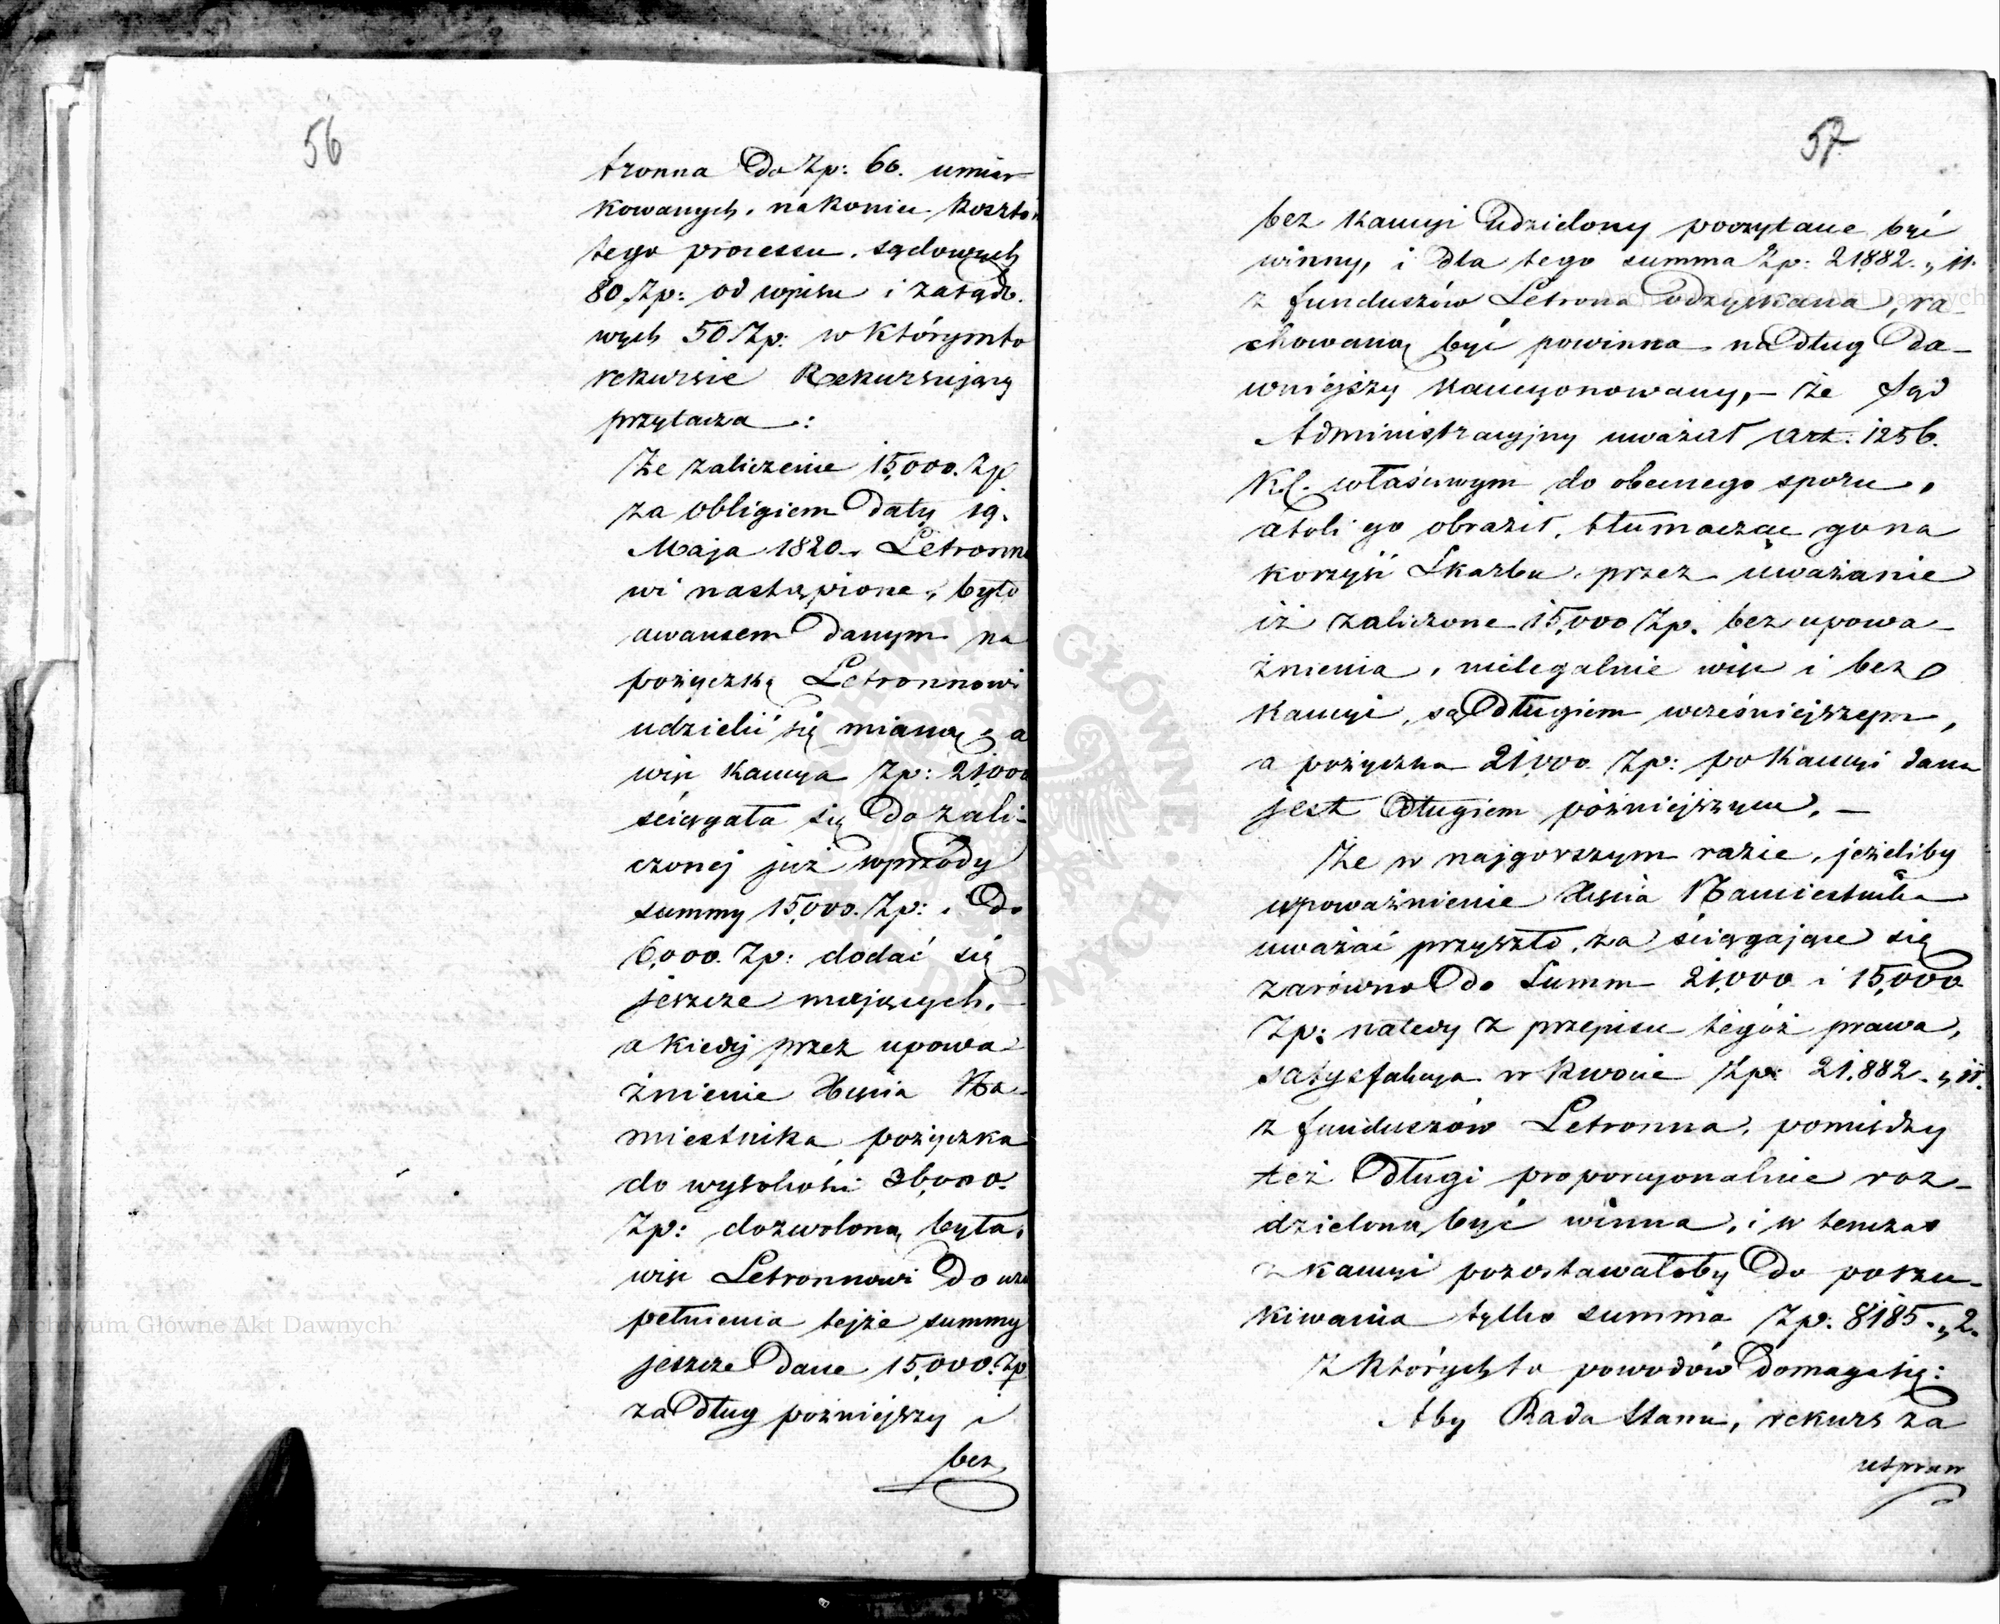 56
tronna do Zp: 60. umiar
kowanych, nakoniec kosztów
tego processu, sądowych
80 Zp: od wpisu i zasąd-
wych 50 Zp: w którymto
rekursie Rekursujący
przytacza:
Że zaliczenie 15,000. Zp
za obligiem daty 19.
Maja 1820. Letronno
wi nastąpione, było
awansem danym na
pożyczkę Letronnowi
udzielić się mianą, a
więc kaucya Zp: 21,000
ściągała się do zali-
czonej już wprzódy
summy 15,000. Zp: i do
6,000. Zp: dodać się
jeszcze mających,
a kiedy przez upowa
żnienie Xięcia Na-
miestnika pożyczka
do wysokości 36,000.
Zp: dozwoloną była,
więc Letronnowi do uzu
pełnienia tejże summy
jeszcze dane 15,000. Zp
za dług późniejszy i
bez
57
bez kaucyi udzielony poczytane być
winny, i dla tego summa Zp: 21882. „ 11.
z funduszów Letrona odzyskana, ra-
chowaną być powinna na dług da-
wniejszy kaucyonowany, – że Sąd
Administracyjny uważał art: 1256.
K.C. właściwym do obecnego sporu,
atoli go obraził, tłumacząc go na
korzyść Skarbu, przez uważanie
iż zaliczone 15,000 Zp. bez upowa-
żnienia, nielegalnie więc i bez
kaucyi, są długiem wcześniejszym,
a pożyczka 21,000. Zp: po kaucyi dana
jest długiem późniejszym. –
Że w najgorszym razie, jeżeliby
upoważnienie Xięcia Namiestnika
uważać przyszło, za ściągające się
zarówno do Summ 21,000 i 15,000
Zp: natedy z przepisu tegóż prawa,
satysfakcya w kwocie Zp: 21.882. „ 11.
z funduszów Letronna, pomiędzy
też długi proporcyonalnie roz-
dzieloną być winna, i w tenczas
z kaucyi pozostawałoby do poszu-
kiwania tylko summa Zp: 8185. „ 2.
Z których to powodów domaga się:
Aby Rada Stanu, rekurs za
uspraw